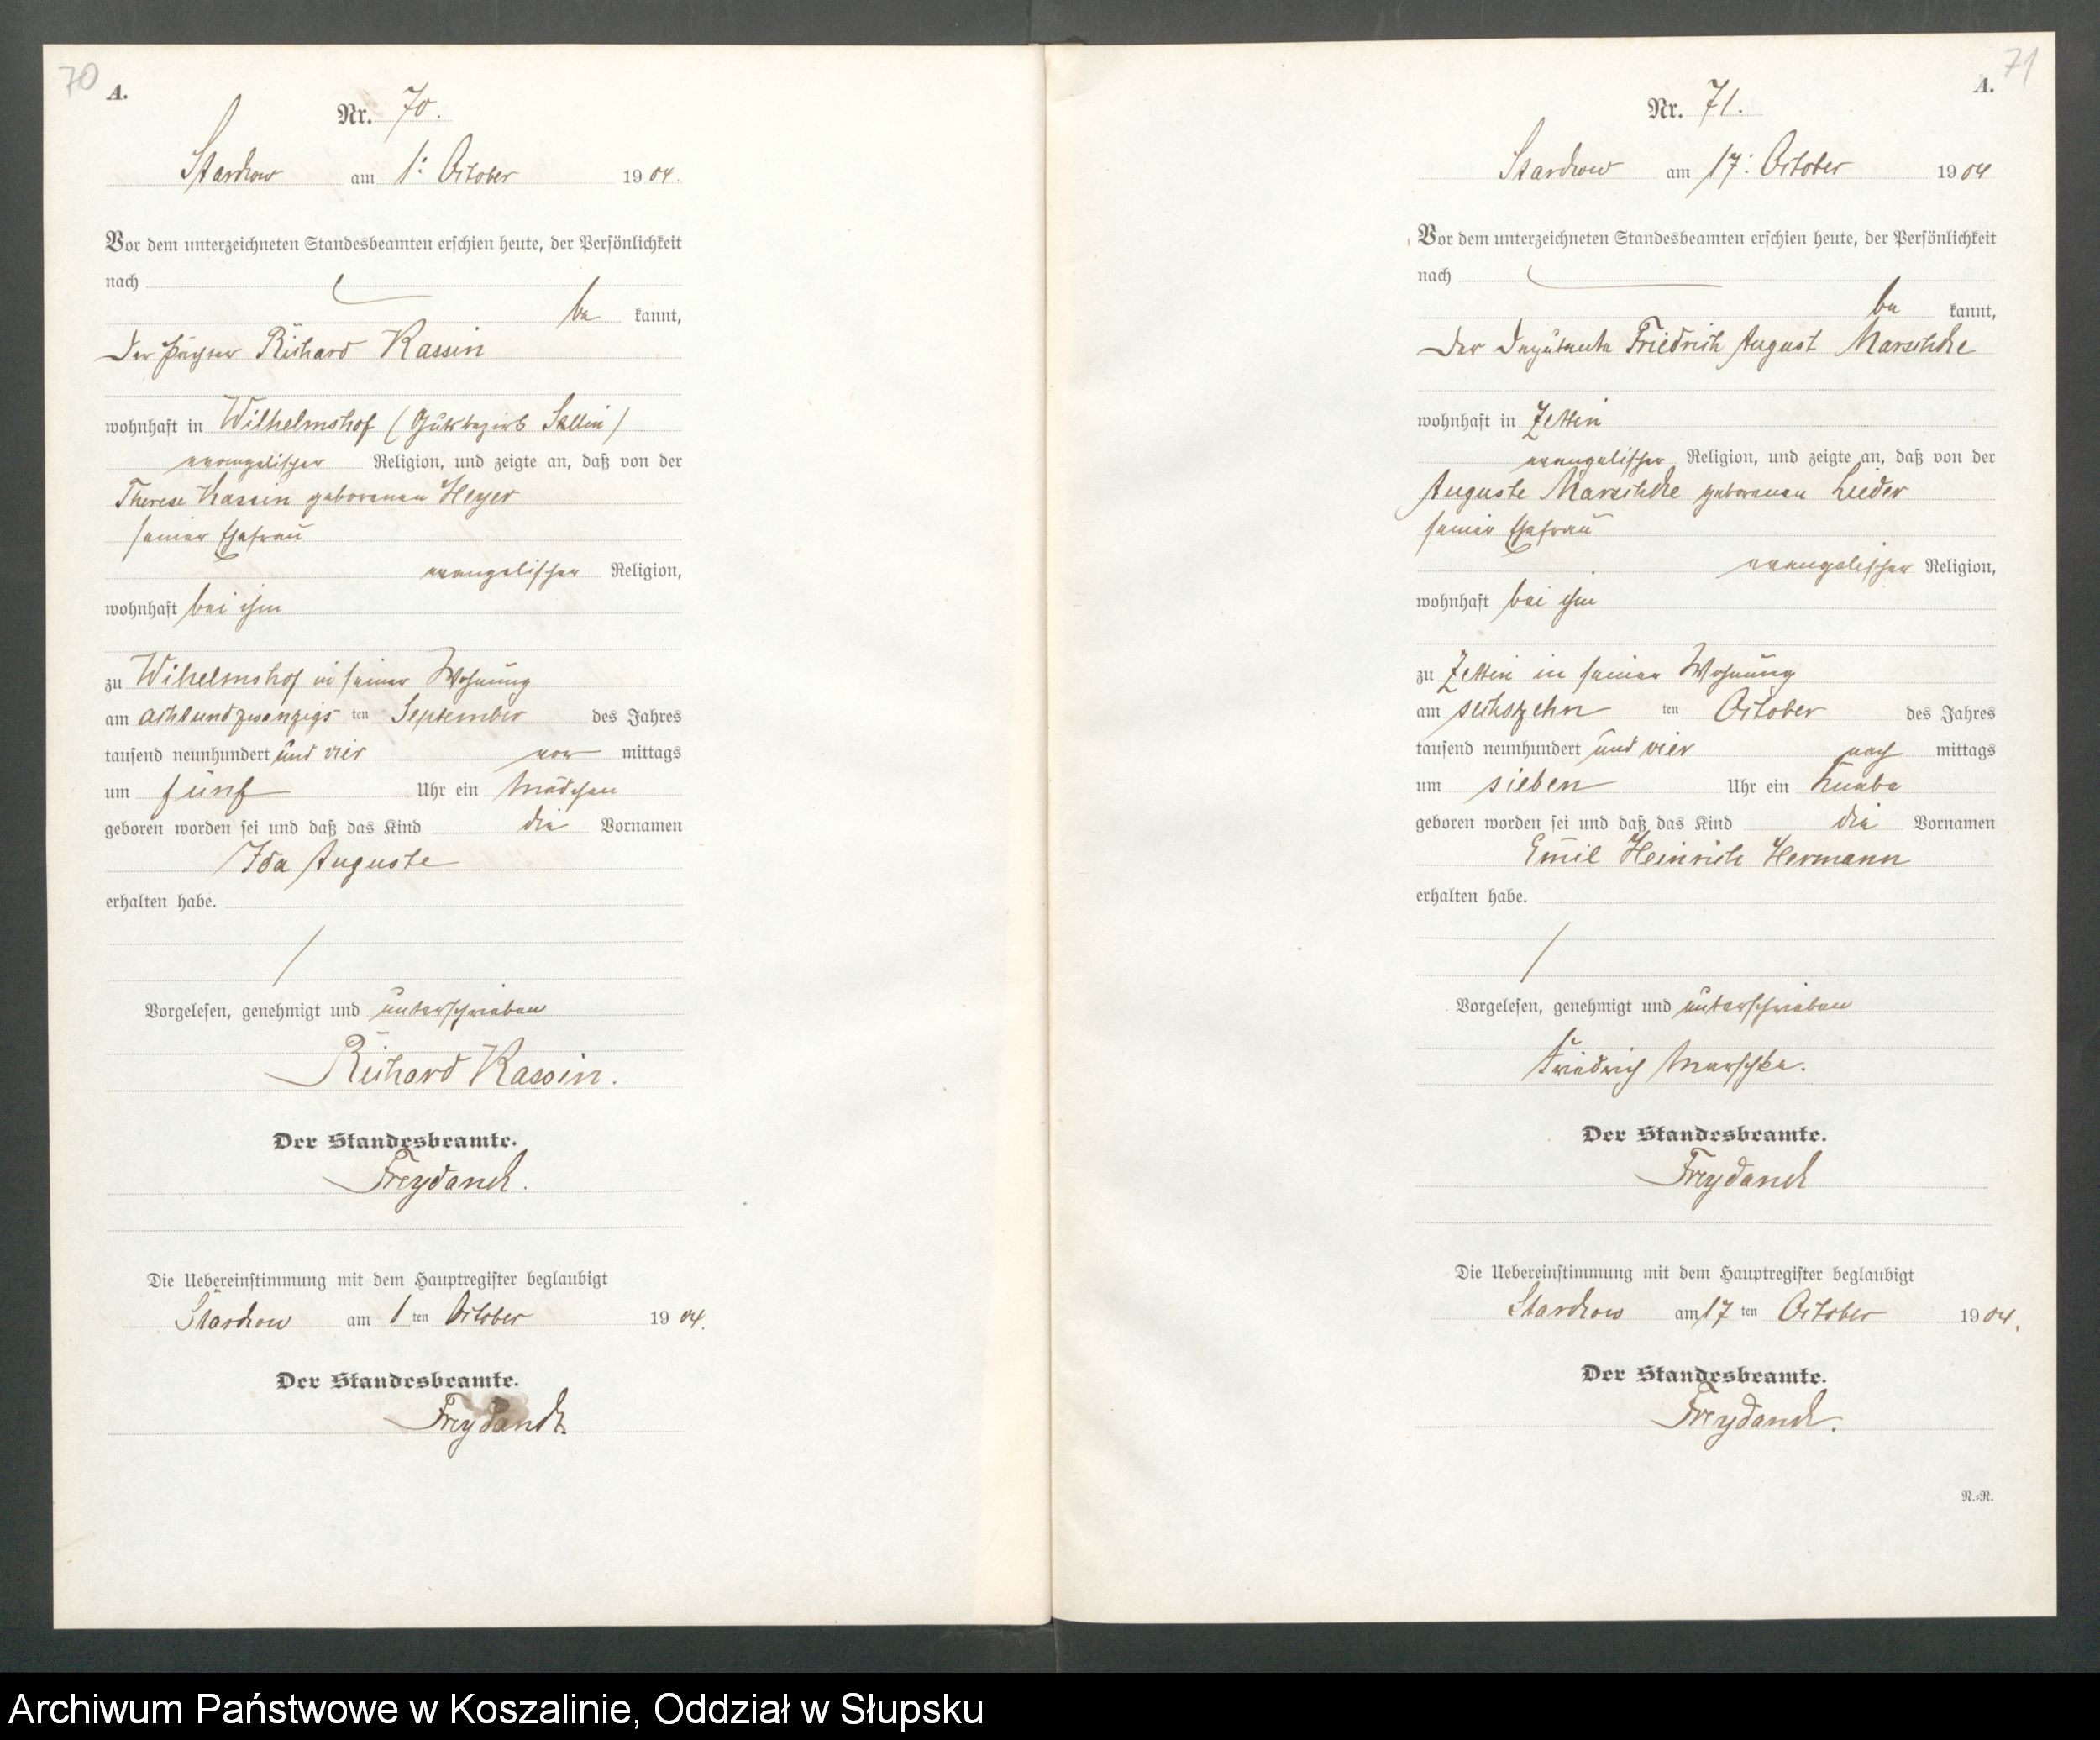 70
A.
Nr. 70.
Starkow am 1. October 1904.
Vor dem unterzeichneten Standesbeamten erschien heute, der Persönlichkeit
nach
be kannt,
Der Richard Kassin
wohnhaft in Wilhelmshof (Gutsbezirk Sellin)
evangelischer Religion, und zeigte an, daß von der
Therese Kassin geborenen Heyer
seiner Ehefrau
evangelischer Religion,
wohnhaft bei ihm
zu Wihelmshof in seiner Wohnung
am achtundzwanzigs ten September des Jahres
tausend neunhundert und vier vor mittags
um fünf Uhr ein Mädchen
geboren worden sei und daß das Kind die Vornamen
Ida Auguste
erhalten habe.
Vorgelesen, genehmigt und unterschrieben
Richard Kassin.
Der Standesbeamte.
Freydanck.
Die Uebereinstimmung mit dem Hauptregister beglaubigt
Starkow am 1 ten October 1904.
Der Standesbeamte.
Freydanck
71
A.
Nr. 71.
Starkow am 17. October 1904
Vor dem unterzeichneten Standesbeamten erschien heute, der Persönlichkeit
nach
be kannt,
Der Deputante Friedrich August Marschke
wohnhaft in Zettin
evangelischer Religion, und zeigte an, daß von der
Auguste Marschke geborenen Lieder
seiner Ehefrau
evangelischer Religion,
wohnhaft bei ihm
zu Zettin in seiner Wohnung
am sechszehn ten October des Jahres
tausend neunhundert und vier nach mittags
um sieben Uhr ein Knabe
geboren worden sei und daß das Kind die Vornamen
Emil Heinrich Hermann
erhalten habe.
Vorgelesen, genehmigt und unterschrieben
Friedrich Marschke.
Der Standesbeamte.
Freydanck
Die Uebereinstimmung mit dem Hauptregister beglaubigt
Starkow am 17 ten October 1904.
Der Standesbeamte.
Freydanck.
R.=R.
Archiwum Państwowe w Koszalinie, Oddział w Słupsku